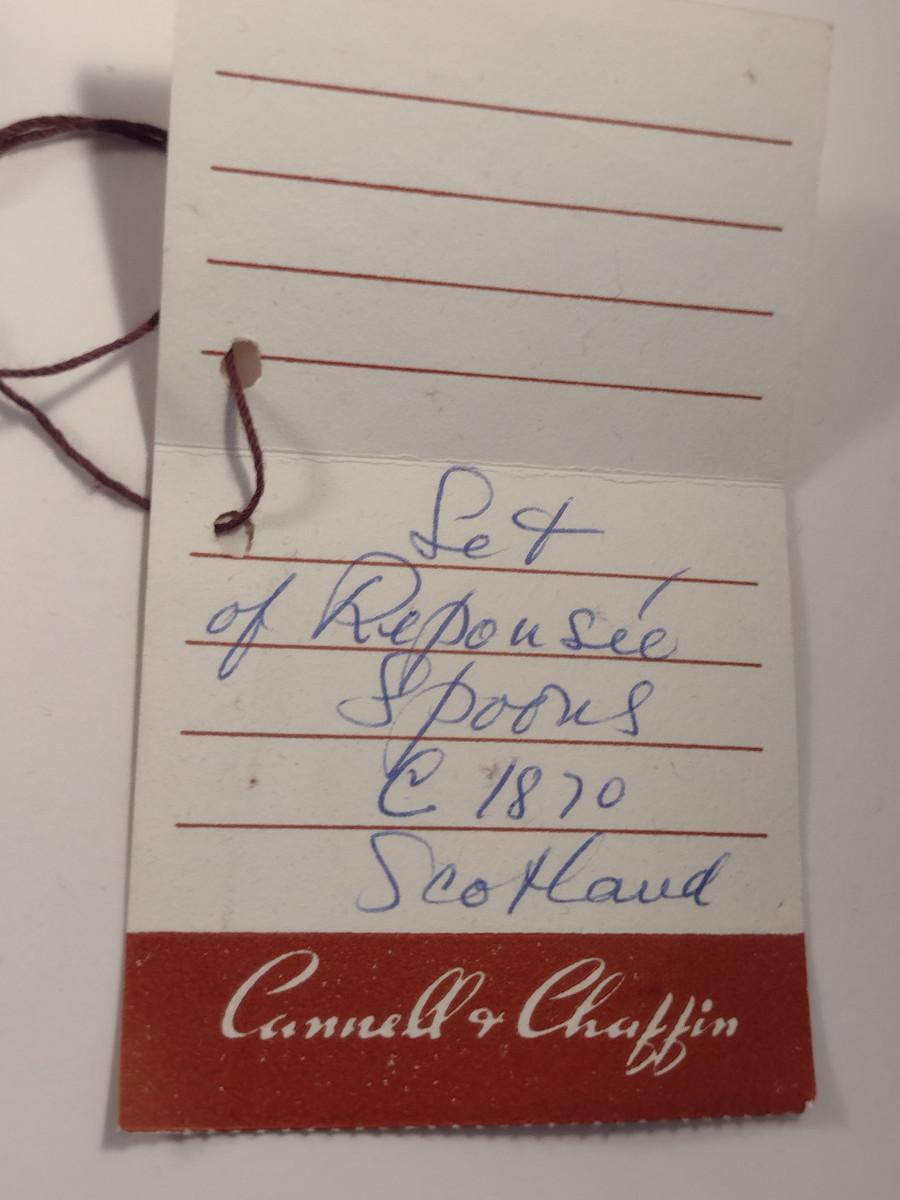 Set
of Repousée
Spoons
C 1870
Scotland
Cannell & Chaffin